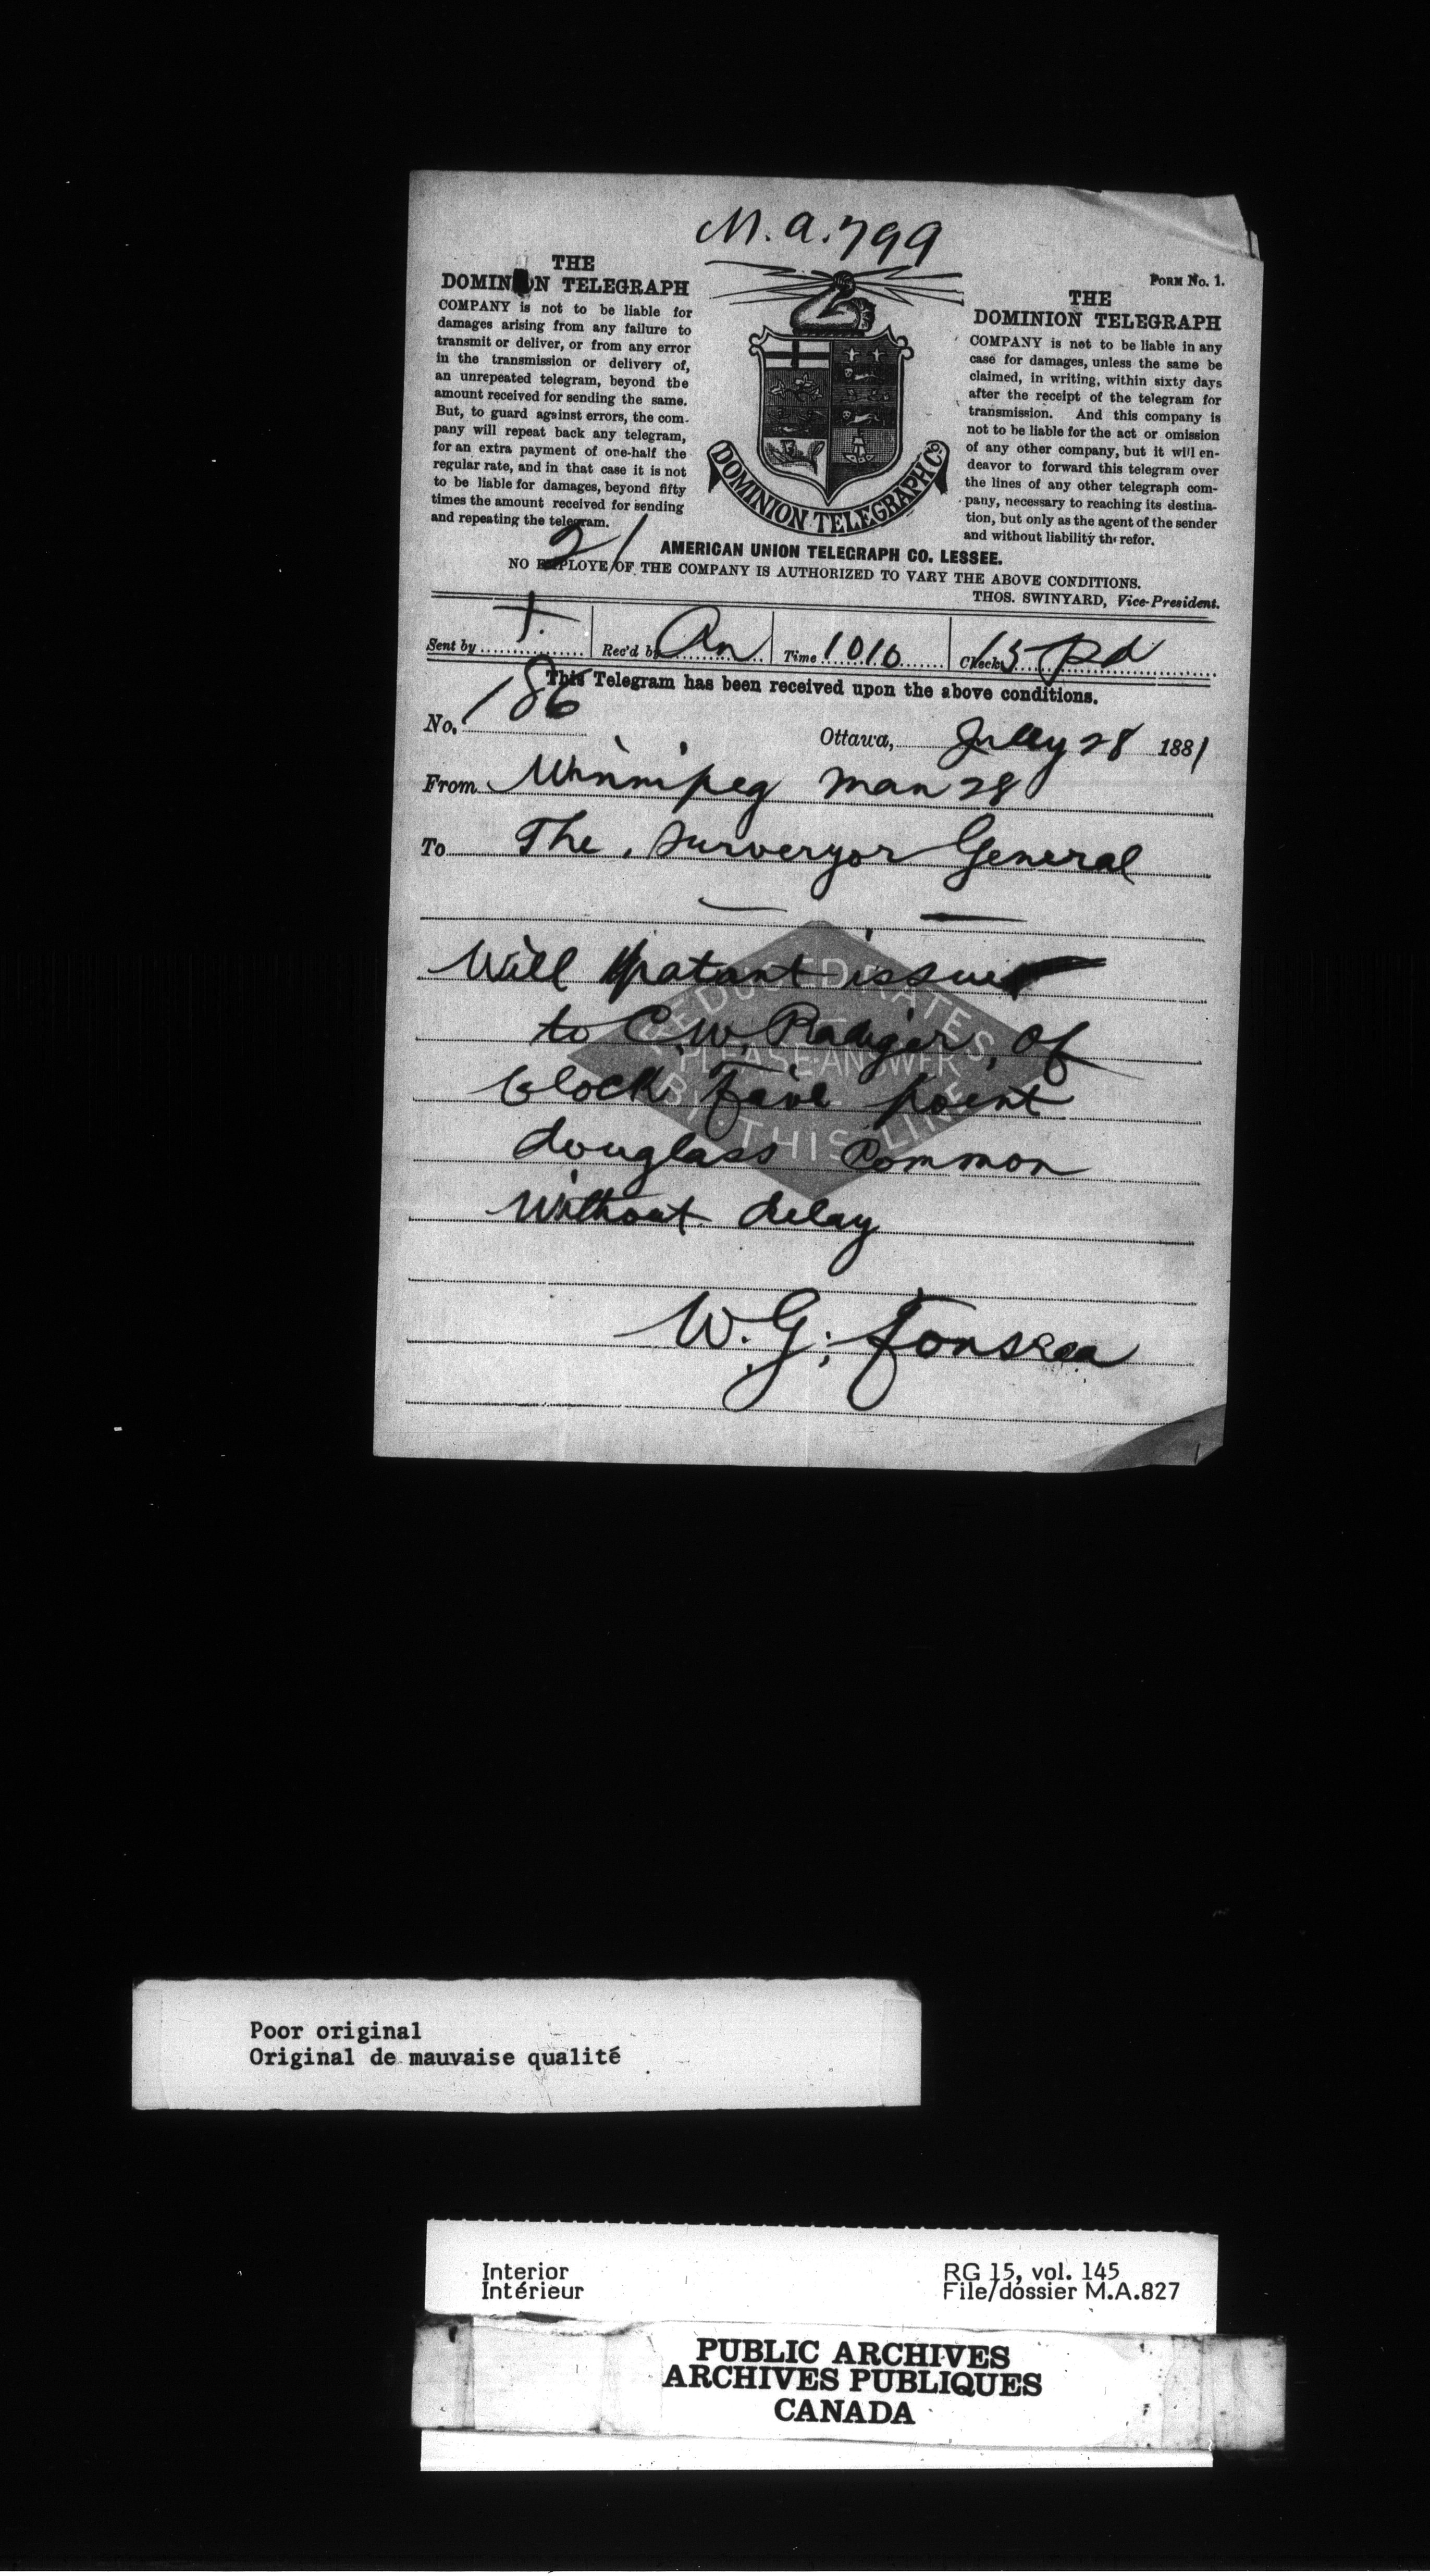 M.A. 799
THE
DOMINION TELEGRAPH
COMPANY is not to be liable for
damages arising from any failure to
transmit or deliver, or from any error
in the transmission or delivery of,
an unrepeated telegram, beyond the
amount received for sending the same.
But, to guard against errors, the com-
pany will repeat back any telegram,
for an extra payment of one-half the
regular rate, and in that case it is not
to be liable for damages, beyond fifty
times the amount received for sending
and repeating the telegram.
DOMINION TELEGRAPH Co.
FORM No. 1.
THE
DOMINION TELEGRAPH
COMPANY is not to be liable in any
case for damages, unless the same be
claimed, in writing, within sixty days
after the receipt of the telegram for
transmission. And this company is
not to be liable for the act or omission
of any other company, but it will en-
deavor to forward this telegram over
the lines of any other telegraph com-
pany, necessary to reaching its destina-
tion, but only as the agent of the sender
and without liability therefor.
21
AMERICAN UNION TELEGRAPH CO. LESSEE.
NO EMPLOYE OF THE COMPANY IS AUTHORIZED TO VARY THE ABOVE CONDITIONS.
THOS. SWINYARD, Vice-President.
Sent by Rec'd by Time 1010 Check 15 Pd
This Telegram has been received upon the above conditions.
No. 186
Ottawa, July 28 1881
From Winnipeg Man 28
To The Surveryor General
Will patent issue
to C.W. Radiger, of
block Five point
douglass Common
without delay
W.G. Fonseca
REDUCED RATES,
PLEASE ANSWER
BY THIS LINE
Poor original
Original de mauvaise qualité
Interior
Intérieur
RG 15, vol. 145
File/dossier M.A.827
PUBLIC ARCHIVES
ARCHIVES PUBLIQUES
CANADA